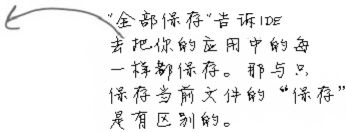 “全部保存”告诉IDE
去把你的应用中的每
一样都保存。那与只
保存当前文件的“保存”
是有区别的。